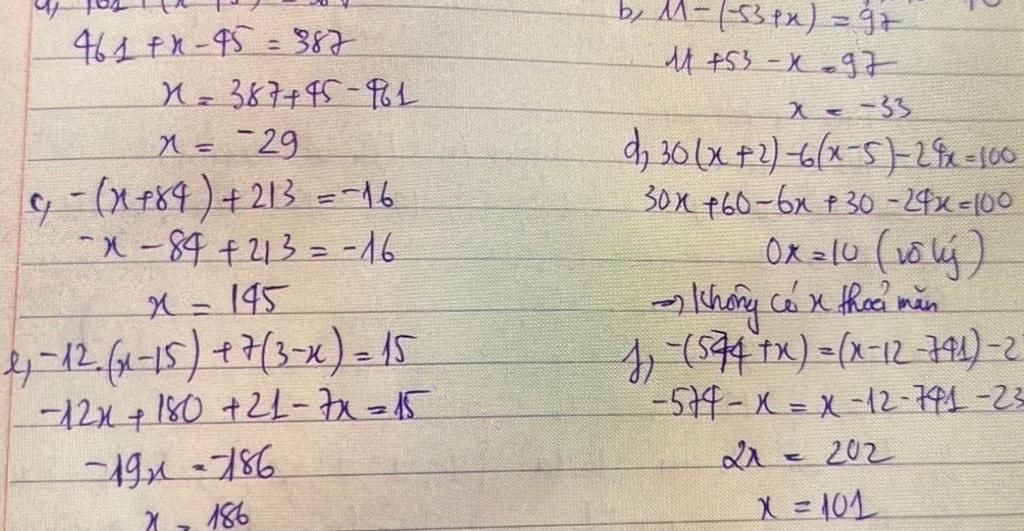 461 + x - 45 = 387
x = 387 + 45 - 461
x = -29
c, -(x+84) + 213 = -16
-x - 84 + 213 = -16
x = 145
e, -12.(x-15) + 7(3-x) = 15
-12x + 180 + 21 - 7x = 15
-19x = -186
x = 186
b, 11 - (-53+x) = 97
11 + 53 - x = 97
x = -33
d, 30(x+2) - 6(x-5) - 24x = 100
30x + 60 - 6x + 30 - 24x = 100
0x = 10 (vô lý)
→ Không có x thoả mãn
f, -(574 + x) = (x - 12 - 741) - 2
-574 - x = x - 12 - 741 - 23
2x = 202
x = 101